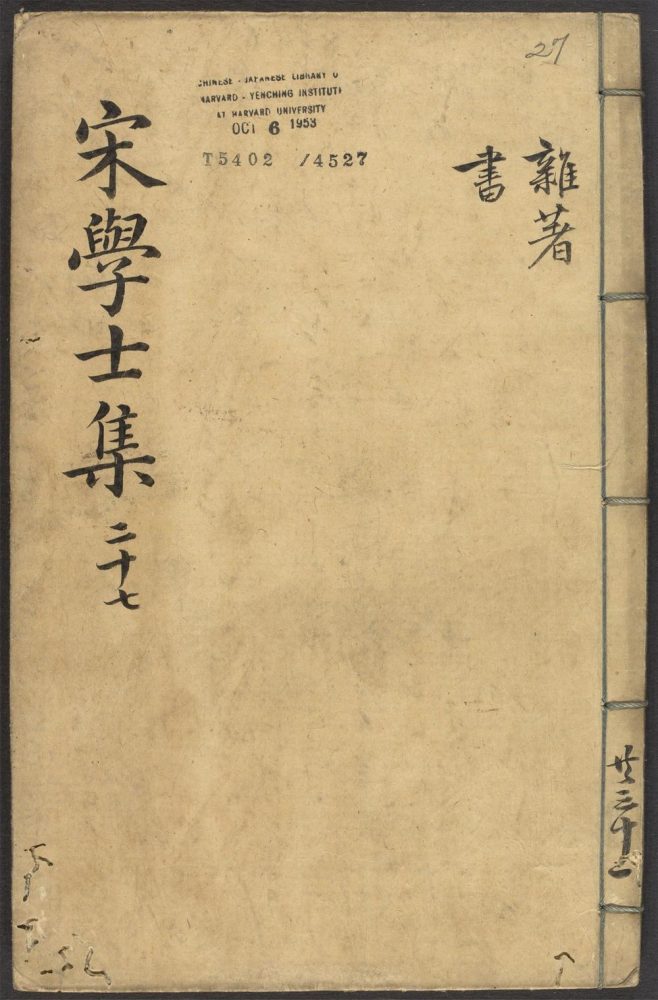 27
雜著
書
CHINESE - JAPANESE LIBRARY O
HARVARD - YENCHING INSTITUTE
AT HARVARD UNIVERSITY
OCT 6 1953
T5402 /4527
宋學士集 二十七
共三十一